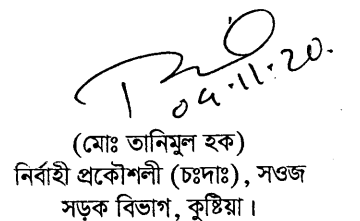 04.11.20.
(মোঃ তানিমুল হক)
নির্বাহী প্রকৌশলী (চঃদাঃ), সওজ
সড়ক বিভাগ, কুষ্টিয়া।